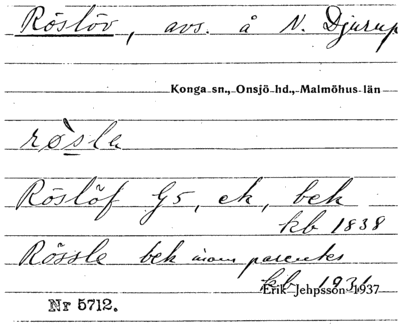 Röslöv, avs. å N. Djurup
Konga sn., Onsjö hd., Malmöhus län
rö̀sla
Röslöf G5, ek, bek
kb 1838
Rössle bek inom parentes
kb 1931
Erik Jehpsson 1937
Nr 5712.